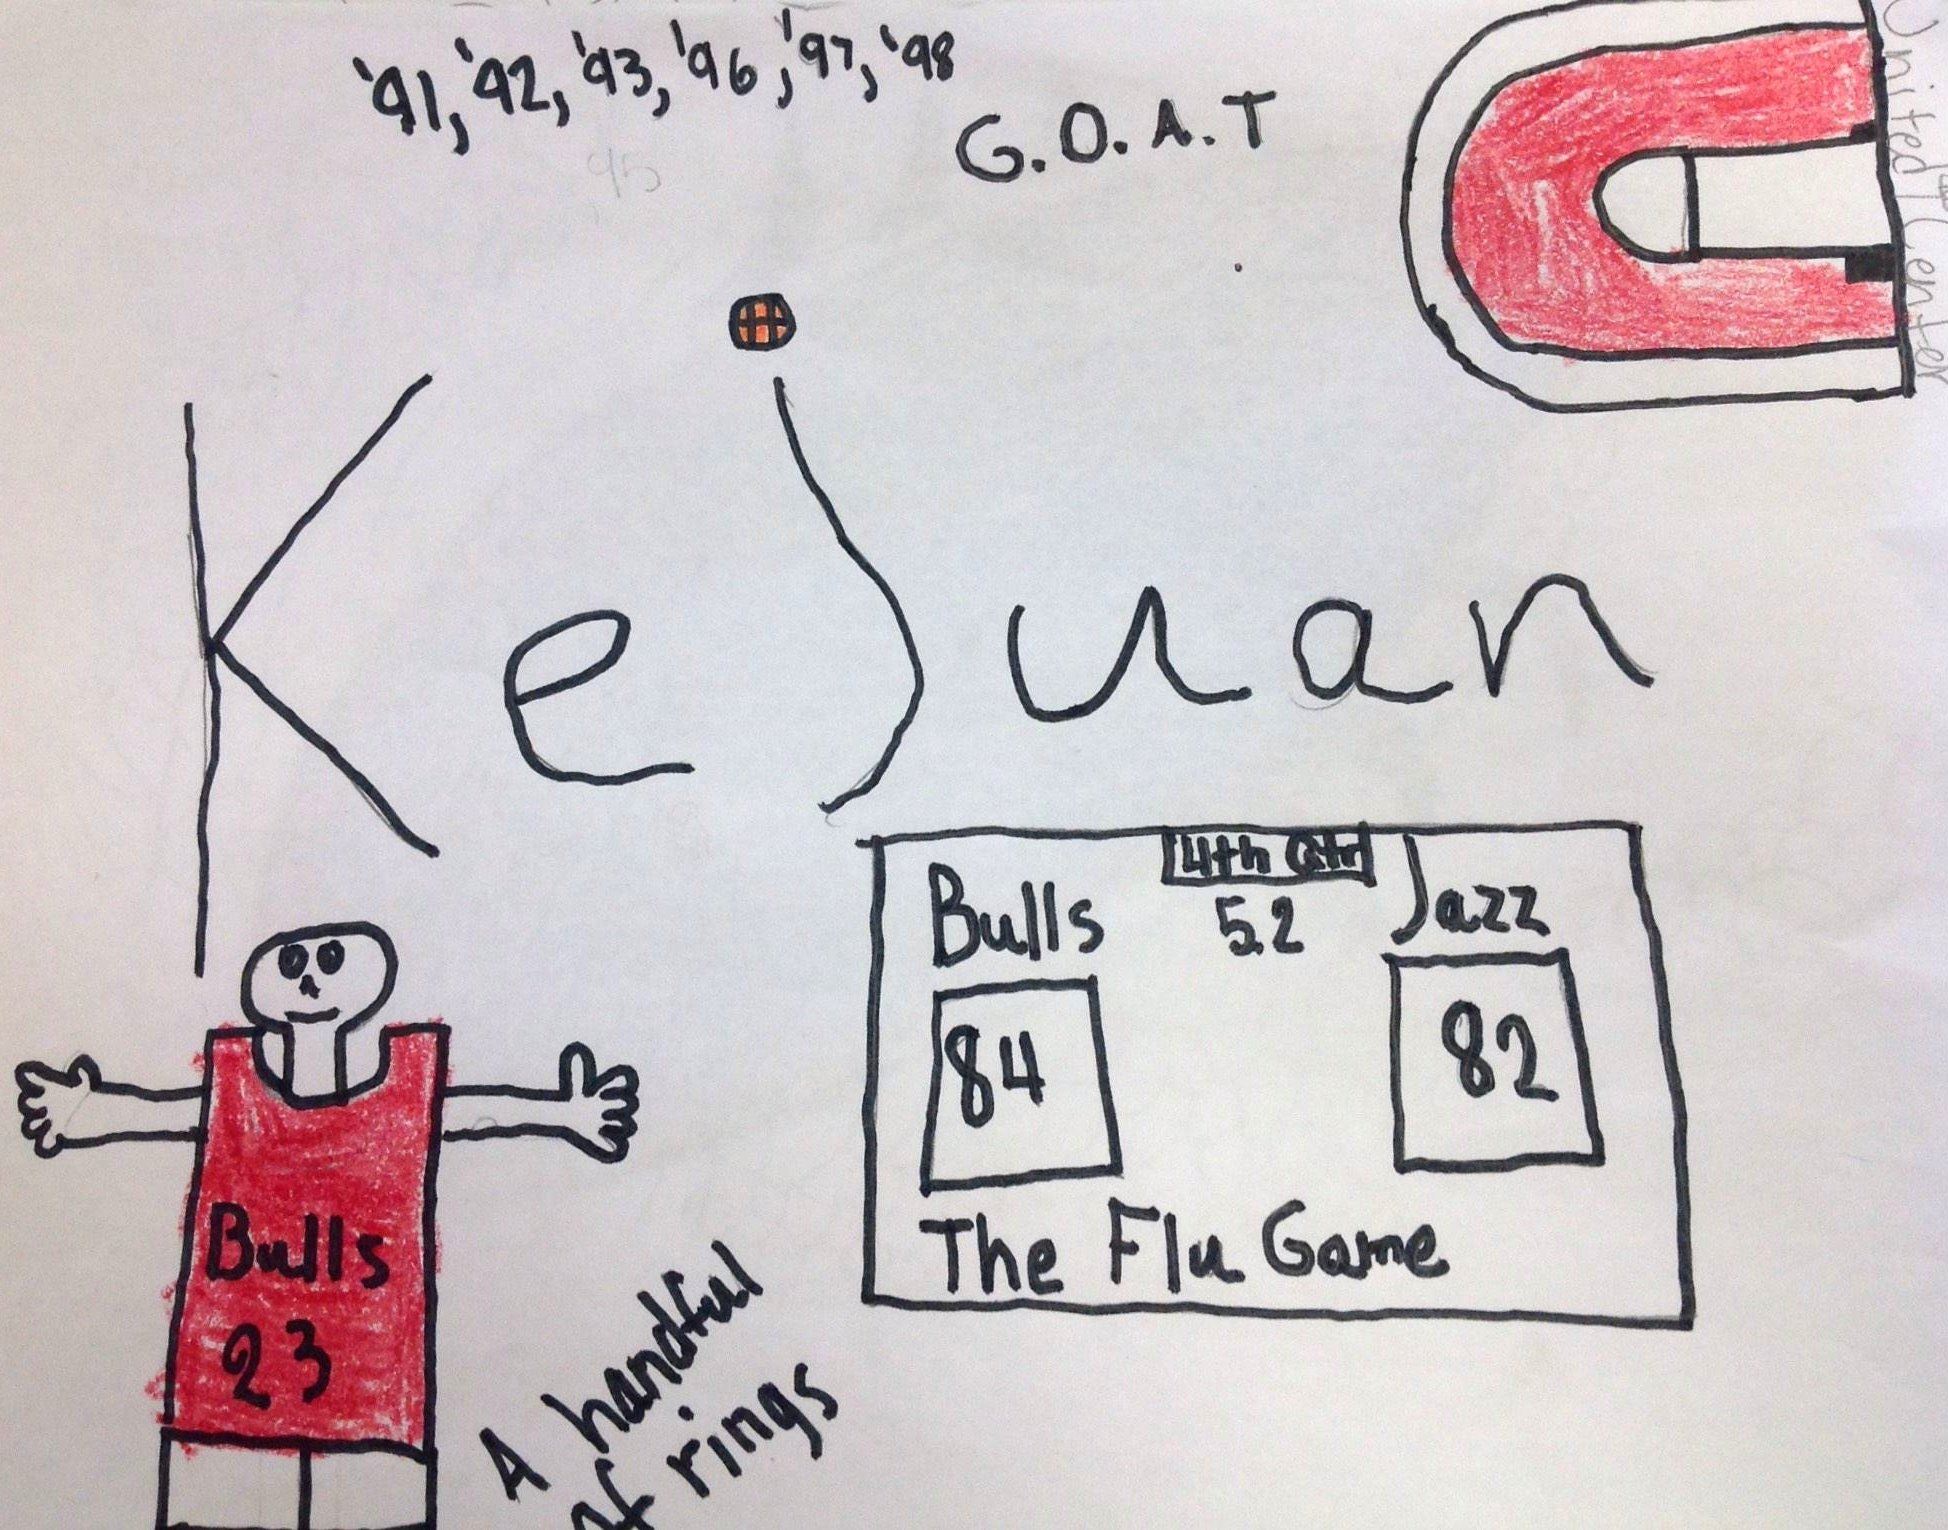 '91, '92, '93, '96, '97, '98
95
G.O.A.T
United Center
Kejuan
4th Qtr
Bulls 5.2 Jazz
84 82
The Flu Game
Bulls
23
A handful
of rings